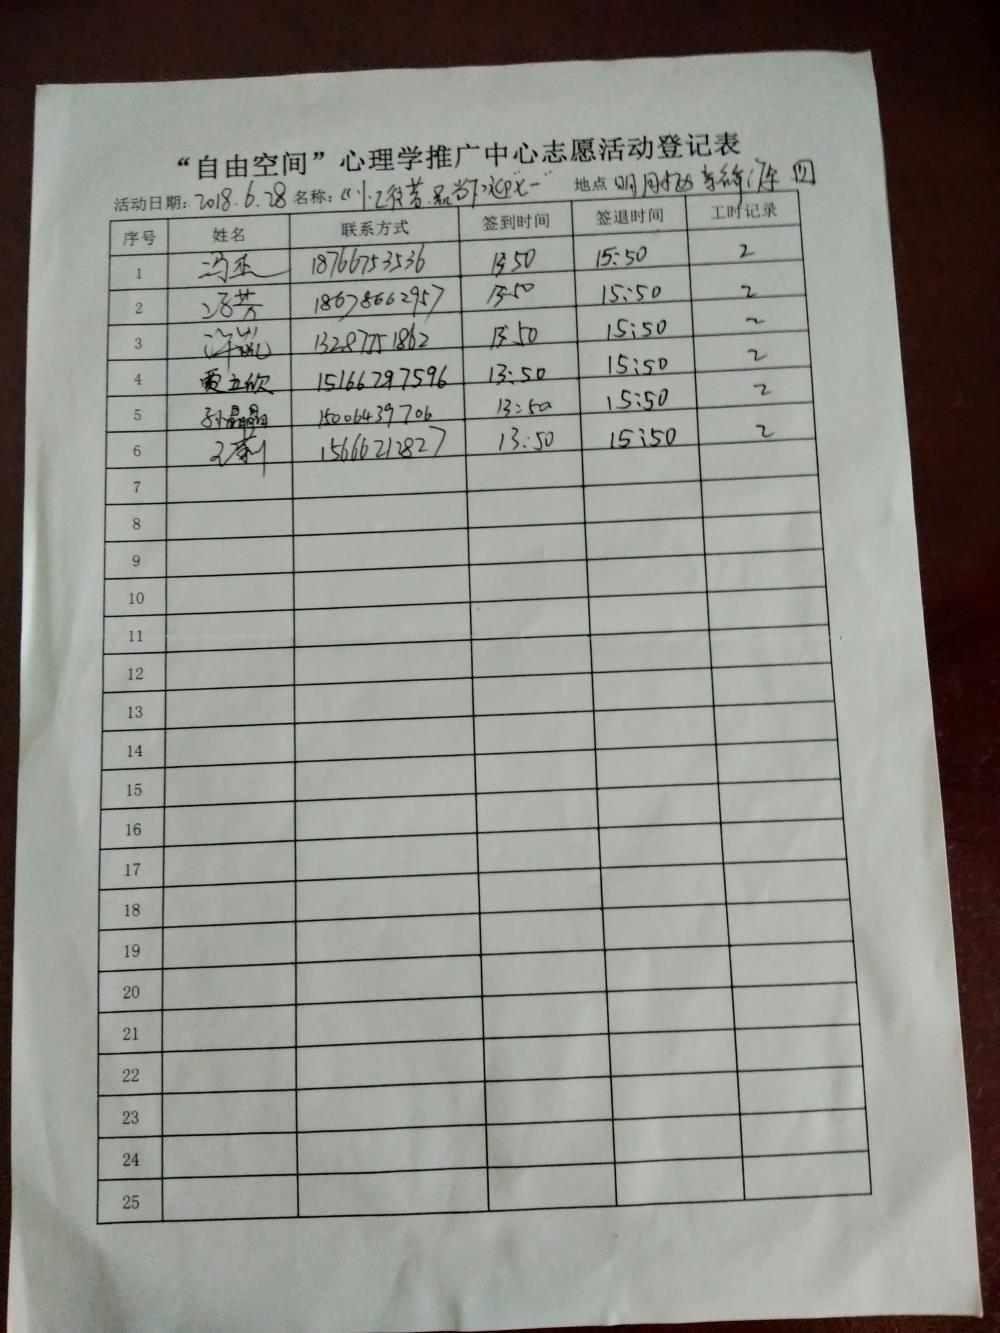 “自由空间”心理学推广中心志愿活动登记表
活动日期：2018.6.28 名称： 地点
序号 姓名 联系方式 签到时间 签退时间 工时记录
1 冯杰 18766753536 13 50 15:50 2
2 冯芳 18678662957 13:50 15:50 2
3 13287751862 13:50 15:50 2
4 贾立欣 15166297596 13:50 15:50 2
5 孙晶晶 15006439706 13:50 15:50 2
6 王莉 15666212827 13:50 15:50 2
7
8
9
10
11
12
13
14
15
16
17
18
19
20
21
22
23
24
25